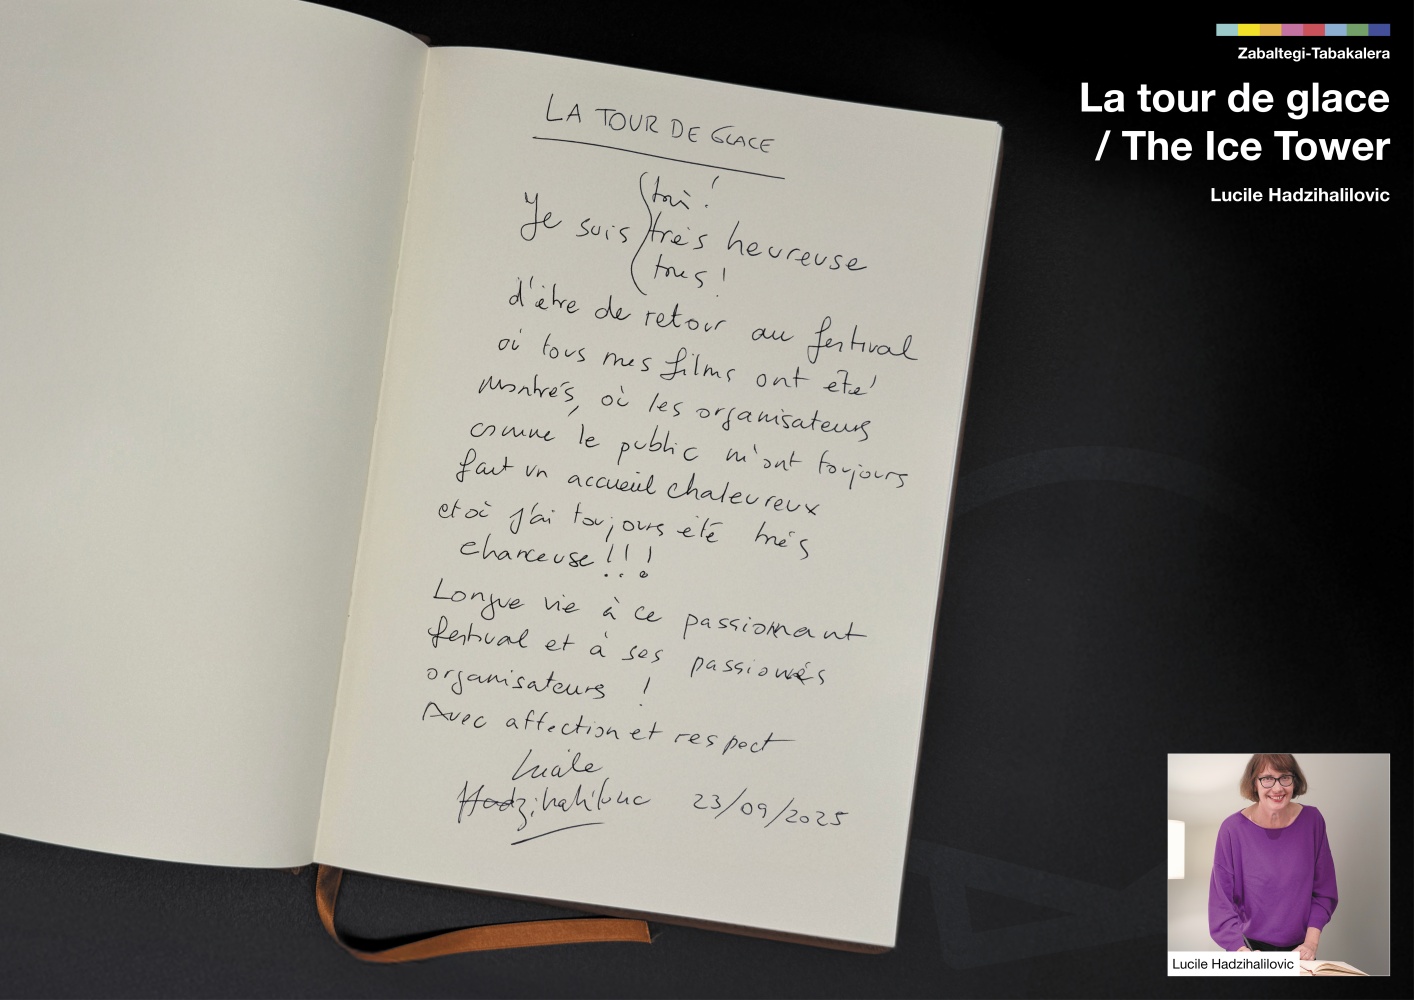 LA TOUR DE GLACE
très !
Je suis très heureuse
très !
d'être de retour au festival
où tous mes films ont été
montrés, où les organisateurs
comme le public m'ont toujours
fait un accueil chaleureux
et où j'ai toujours été très
chanceuse !!!
Longue vie à ce passionnant
festival et à ses passionnés
organisateurs !
Avec affection et respect
Lucile
Hadzihalilovic 23/09/2025
Zabaltegi-Tabakalera
La tour de glace
/ The Ice Tower
Lucile Hadzihalilovic
Lucile Hadzihalilovic